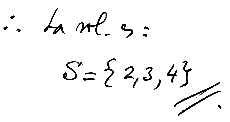 ∴ La sol. es:
S = {2,3,4}